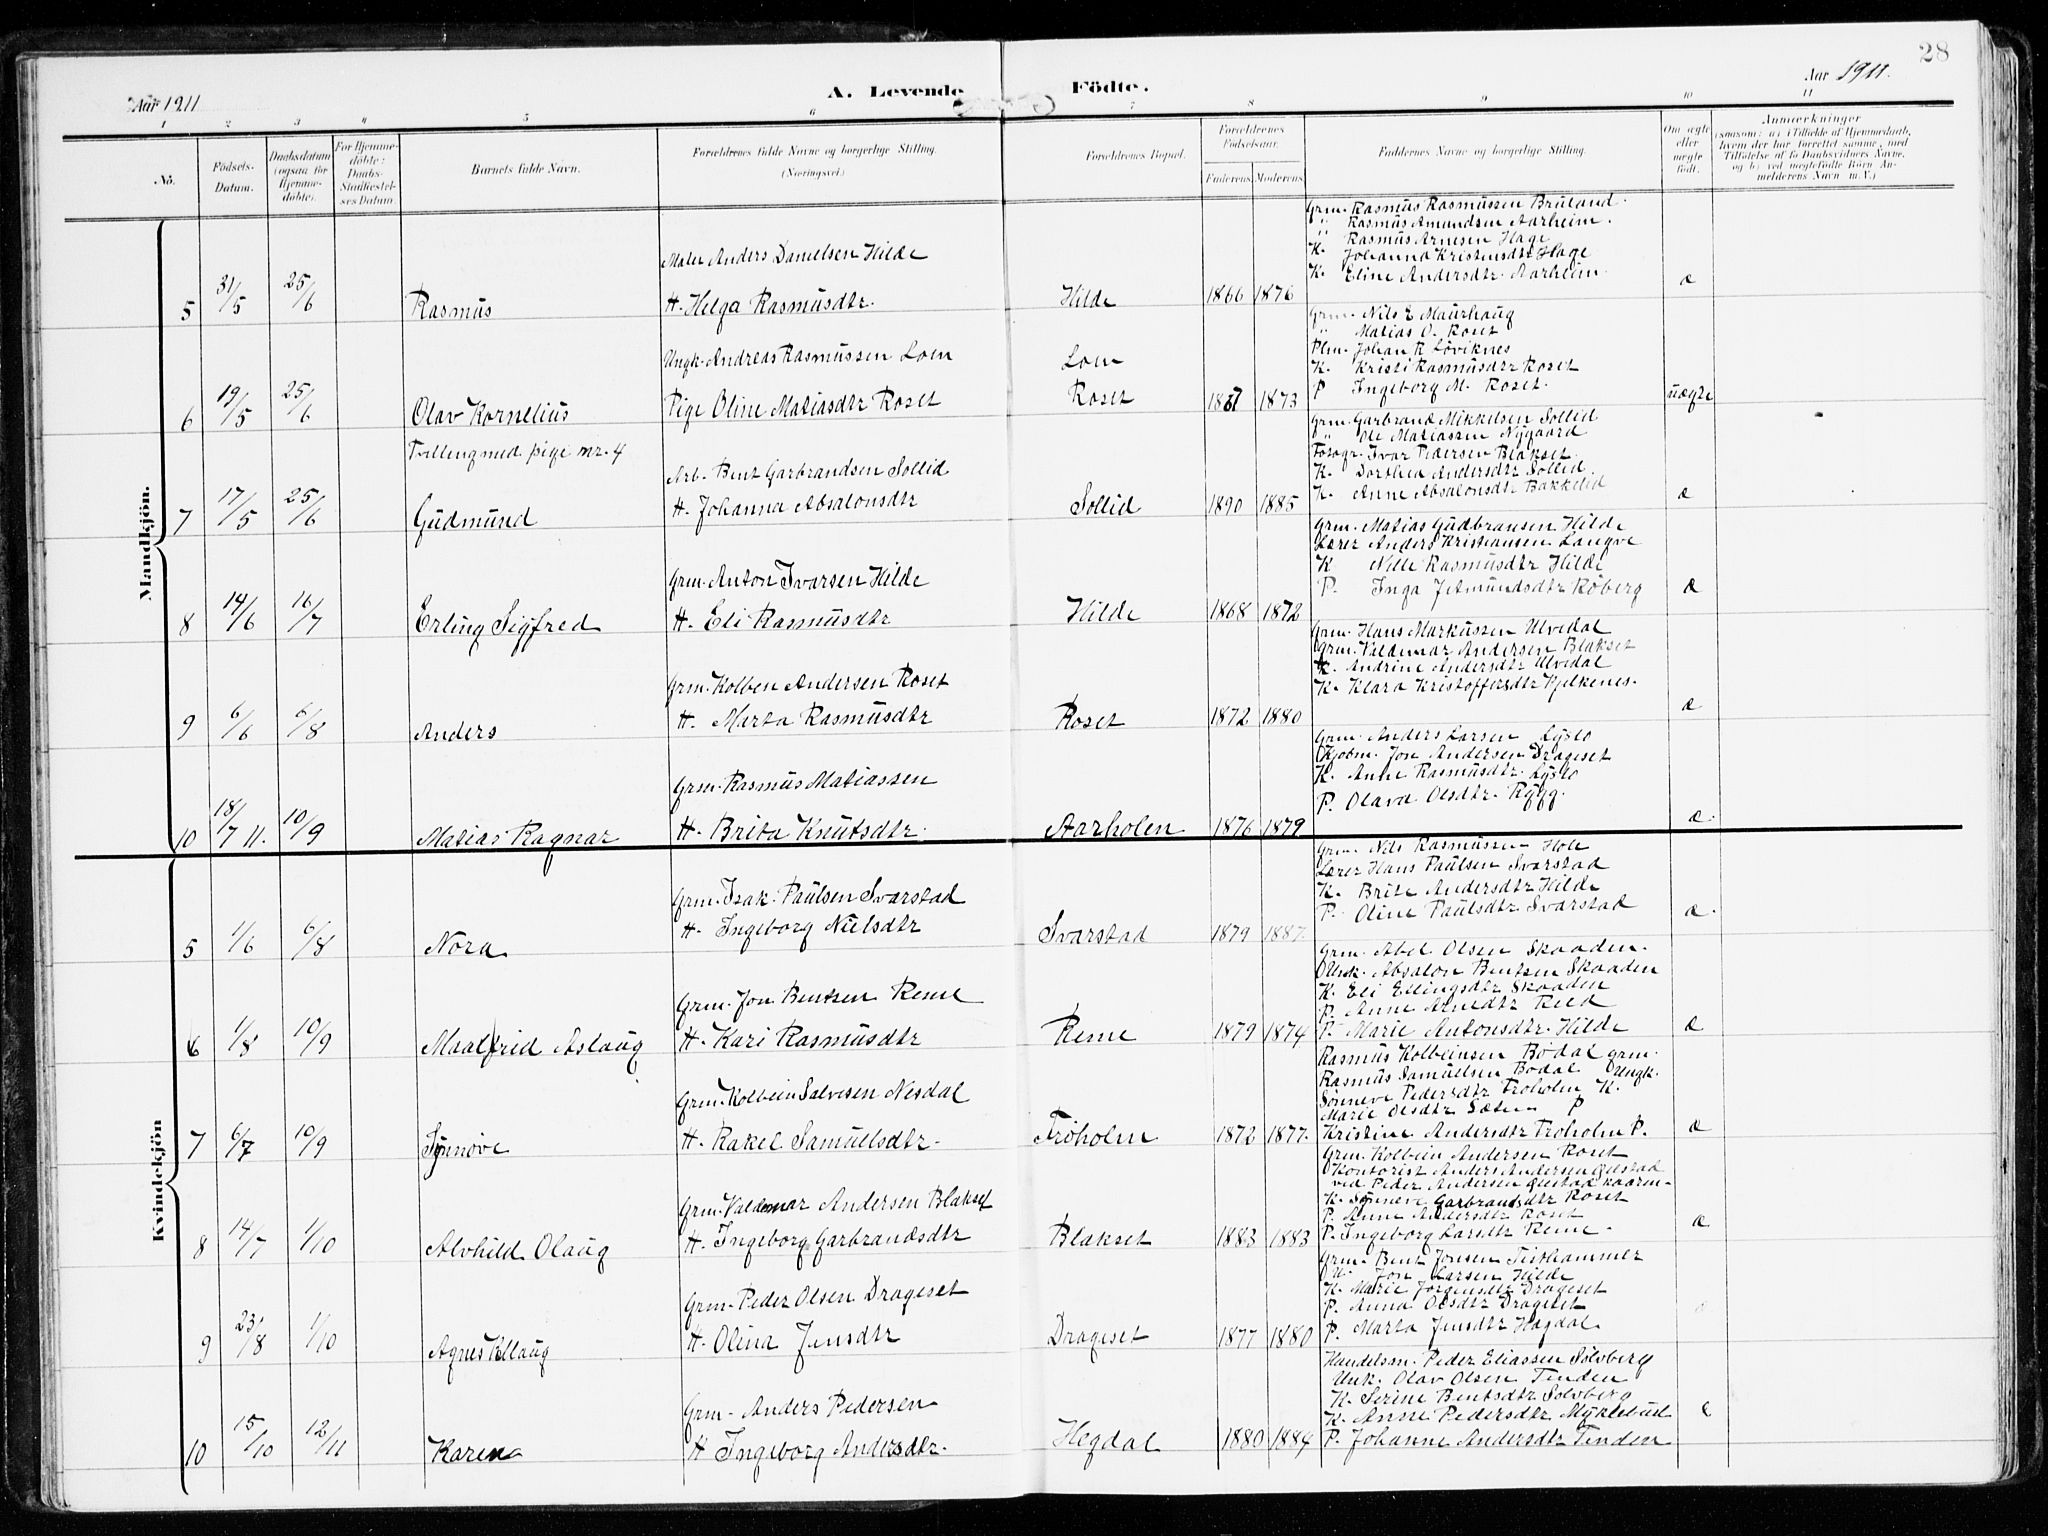 28
Aar 1911
A. Levende
Födte.
Aar 1911.
1 2 3 4 5 6 7 8 9 10 11
No.
Födsels-Datum.
Daabsdatum (ogsaa for Hjemme-döbte).
For Hjemme-döbte: Daabs-Stadfæstel-ses Datum.
Barnets fulde Navn.
Forældrenes fulde Navne og borgerlige Stilling.
(Næringsvei.)
Forældrenes Bopæl.
Forældrenes Födselsaar.
Faderens. Moderens.
Faddernes Navne og borgerlige Stilling.
Om ægte eller uægte födt.
Anmærkninger
(saasom: a) i Tilfælde af Hjemmedaab, hvem der har forrettet samme, med Tilföielse af to Daabsvidners Navne, og b) ved uegtefödte Börn Anmelderens Navn m. V.)
Mandkjön.
5 31/5 25/6 Rasmus
Maler Anders Danielsen Hilde
H. Helga Rasmusdtr.
Hilde 1866 1876
Grm. Rasmus Rasmussen Bruland.
" Rasmus Amundsen Aarheim.
" Rasmus Arnesen Hage
K. Johanna Kristensdtr Hage
K. Eline Andersdtr. Aarheim.
æ
6 19/5 25/6 Olav Kornelius
Ungk. Andreas Rasmussen Loen
Pige Oline Matiasdtr Roset
Loen
Roset 1873
Grm. Nils E Maurhaug
" Matias O. Roset
Plm. Johan R Löviknes
K. Kristi Rasmusdtr Roset
P Ingeborg M. Roset.
uægte
Tvilling med pige nr. 4
7 17/5 25/6 Gudmund
Arb. Bent Garbrandsen Sollid
H. Johanna Absalonsdtr
Sollid 1890 1885
Grm. Garbrand Mikkelsen Sollid
" Ole Matiassen Nygaard
Fotogr. Ivar Pedersen Blakset.
K. Dorthea Andersdtr Sollid.
K. Anne Absalonsdtr Bakkelid
æ
8 14/6 16/7 Erling Sigfred
Grm. Anton Ivarsen Hilde
H. Eli Rasmusdtr
Hilde 1868 1872
Grm. Matias Gudbransen Hilde
Lærer Anders Kristiansen Langve
K Nille Rasmusdtr Hilde
P. Inga Jetmundsdtr Röberg
æ
9 6/6 6/8 Anders
Grm. Kolben Andersen Roset
H. Marta Rasmusdtr
Roset 1872 1880
Grm. Hans Markussen Ulvedal
Grm. Valdemar Andersen Blakset
K. Andrine Andersdtr Ulvedal
K. Klara Kristoffersdtr Hjelkenes.
æ
10 18/7 11. 10/9 Matias Ragnar
Grm. Rasmus Matiassen
H. Brita Knutsdtr.
Aarholen 1876 1879
Grm. Anders Larsen Lyslo
Kjøbm. Jon Andersen Drageset
K. Anne Rasmusdtr. Lyslo
P. Olava Olsdtr. Rygg.
æ.
Kvindekjön
5 1/6 6/8 Nora
Grm. Isak. Paulsen Svarstad
H. Ingeborg Nielsdtr
Svarstad 1879 1887.
Grm. Nils Rasmussen Hole
Lærer Hans Paulsen Svarstad
K. Brite Andersdtr Hilde
P. Oline Paulsdtr Svarstad
æ.
6 1/8 10/9 Maalfrid Aslaug
Grm. Jon Bentsen Reme
H. Kari Rasmusdtr
Reme 1879 1874
Grm. Abel Olsen Skaaden.
Unk. Absalon Bentsen Skaaden
K. Eli Ellingsdtr Skaaden
P. Anne Arnedtr Reed
P. Marie Antonsdtr. Hilde
æ
7 6/7 10/9 Synnöve
Grm. Kolbein Salvesen Nesdal
H. Rakel Samuelsdtr.
Tröholm 1872 1877.
Rasmus Kolbeinsen Bödal grm.
Rasmus Samuelsen Bödal Ungk.
Sönneve Pedersdtr Troholm K.
Marie Olsdtr Sæten P
Kristine Andersdtr Troholm P.
æ
8 14/7 1/10 Alvhild Olaug
Grm. Valdemar Andersen Blakset
H. Ingeborg Garbrandsdtr
Blakset 1883 1883
Grm. Kolbein Andersen Roset
Kontorist Anders Andersen Gjelstad
ved Peder Andersen Gjelstad
K. Sönneve Garbrandsdtr Roset
P. Anne Andersdtr Roset
P. Ingeborg Larsdtr Reme.
æ
9 23/8 1/10 Agnes Ollaug
Grm. Peder Olsen Drageset
H. Olina Jensdtr
Drageset 1877 1880
Grm. Bent Jonsen Tisthammer
U. Jon Larsen Hilde
K. Marie Jorgensdtr Drageset
P. Anna Olsdtr Drageset
P. Marta Jensdtr Hagdal.
10 15/10 12/11 Karen
Grm. Anders Pedersen
H Ingeborg Andersdtr.
Hegdal 1880 1884
Handelsm. Peder Eliassen Sölvberg
Unk. Olav Olsen Tenden
K. Serine Bentsdtr Sölvberg
K. Anne Pedersdtr Myklebust
P. Johanne Andersdtr Tenden